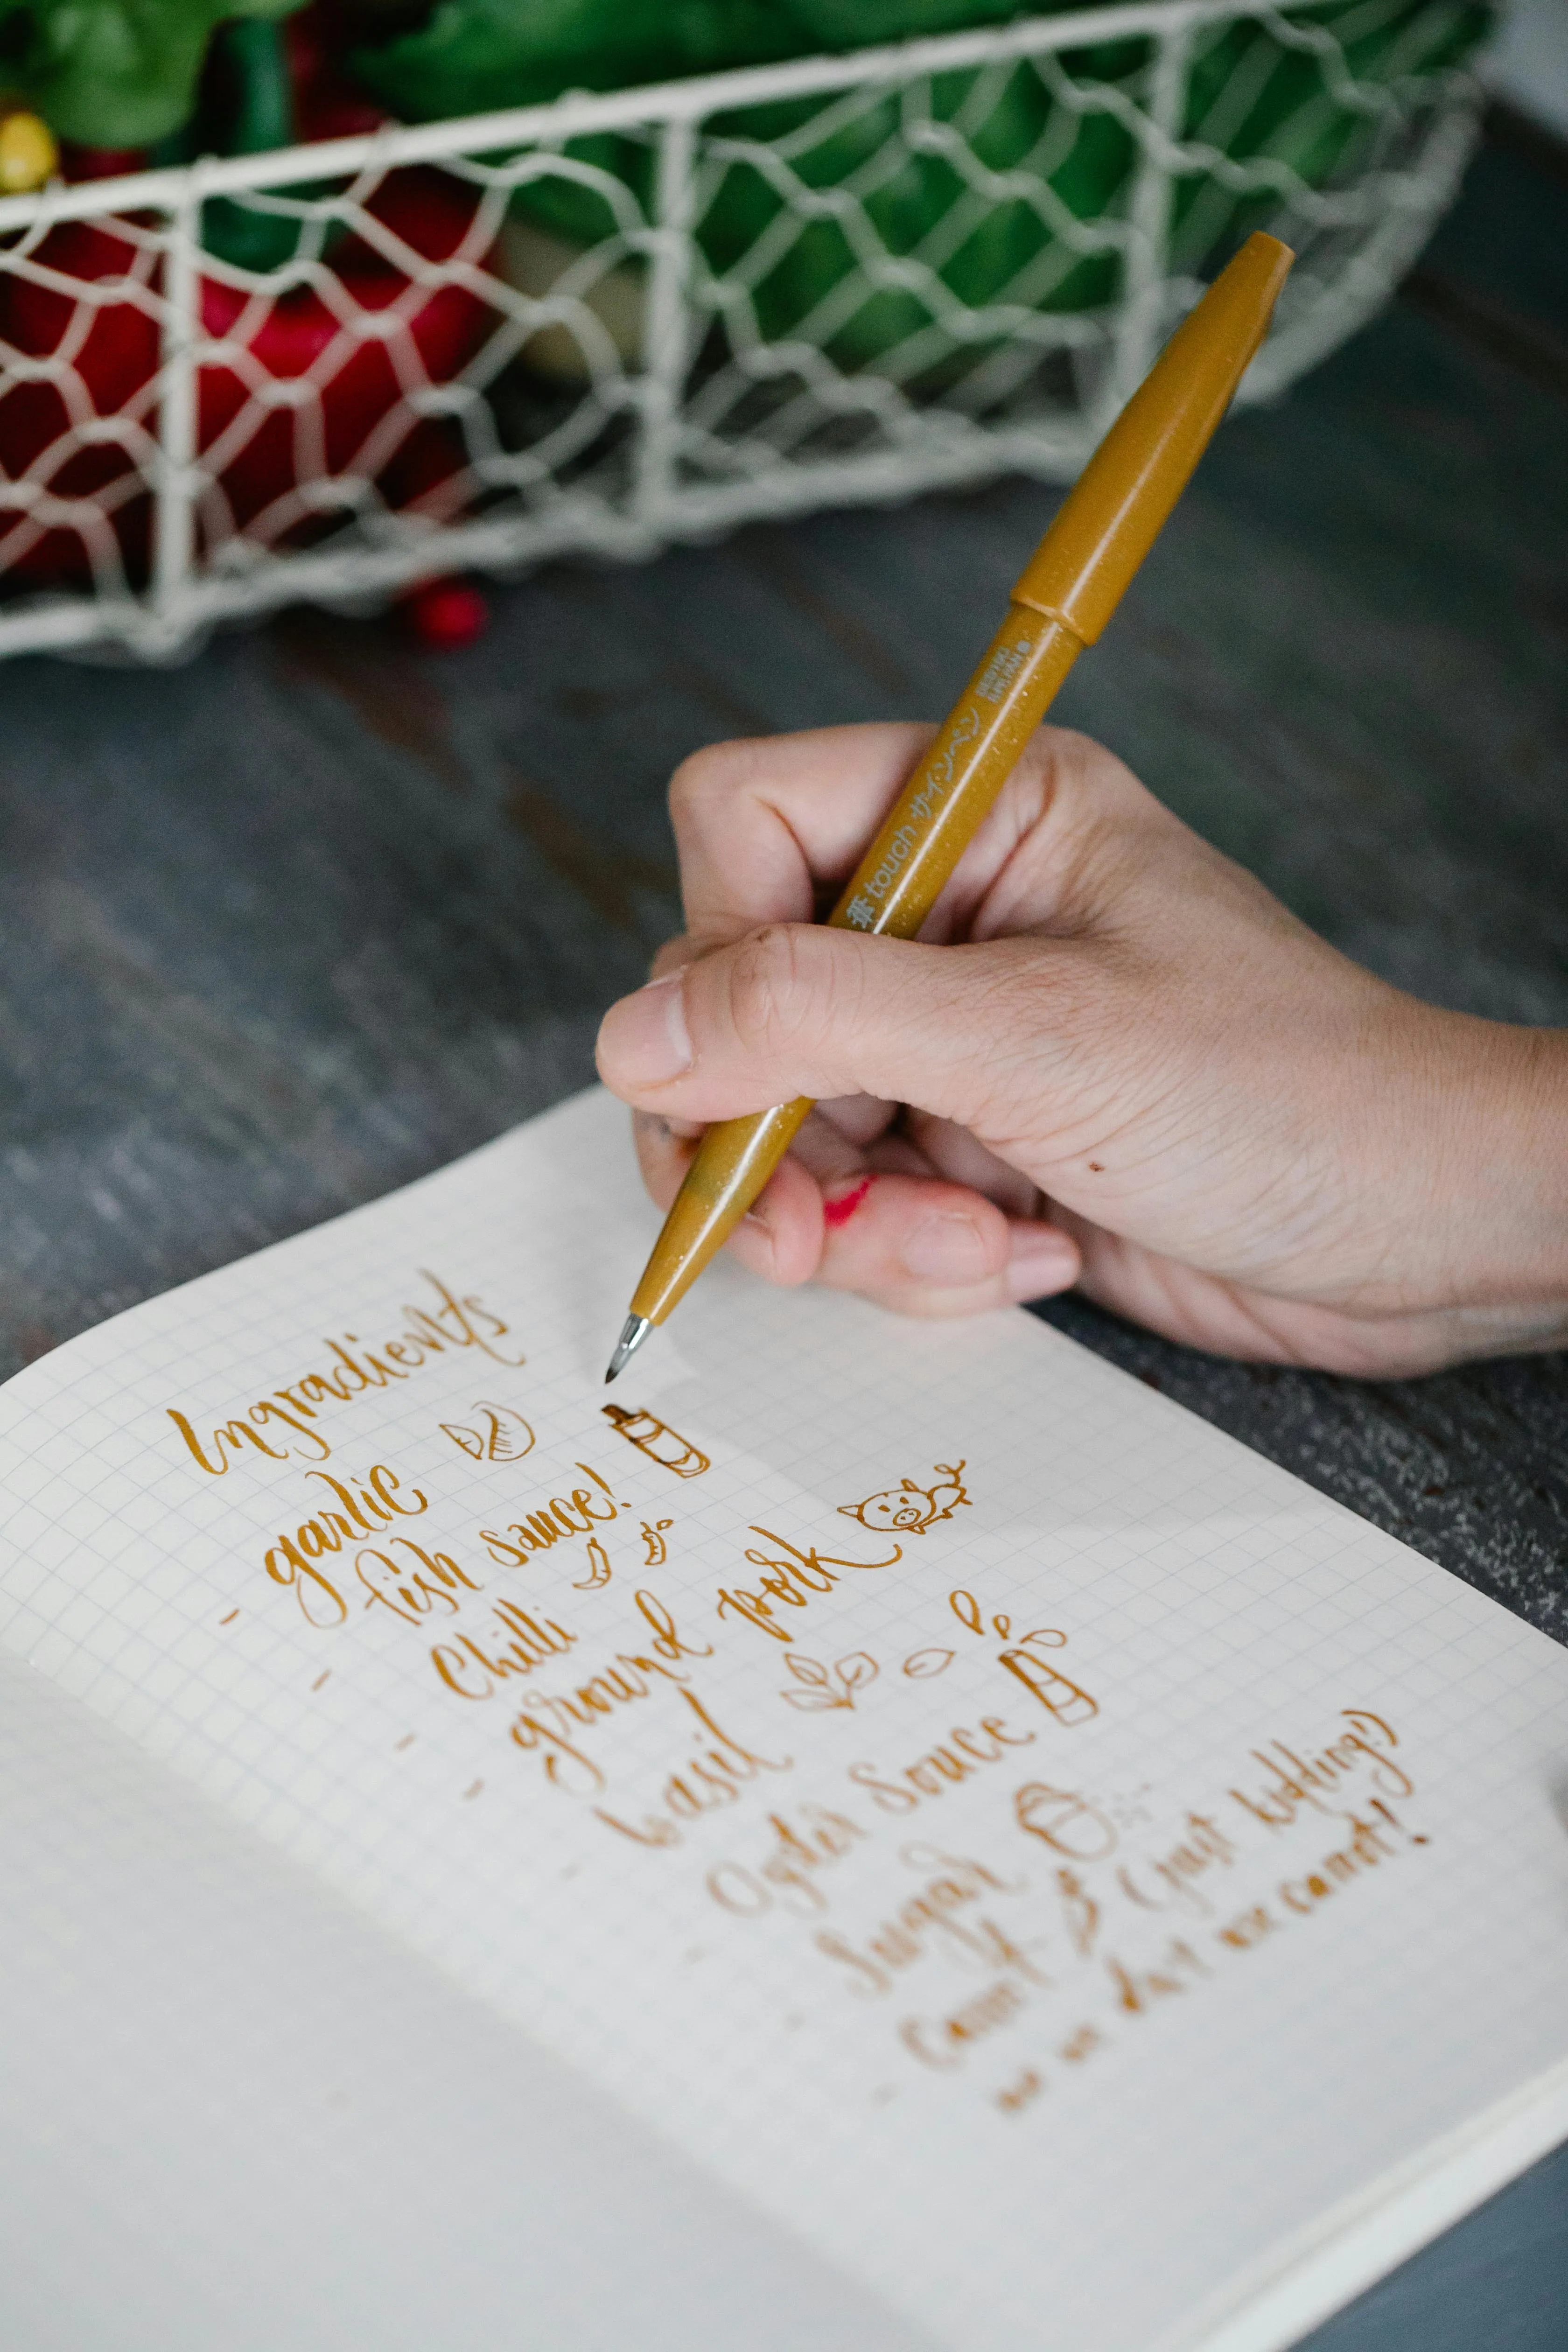 touch サインペン
Ingradients
- garlic
- fish sauce!
- Chilli
- ground pork
basil
- Oyster Souce
- Sugar
- Carrot (just kidding!)
we do not use carrot!